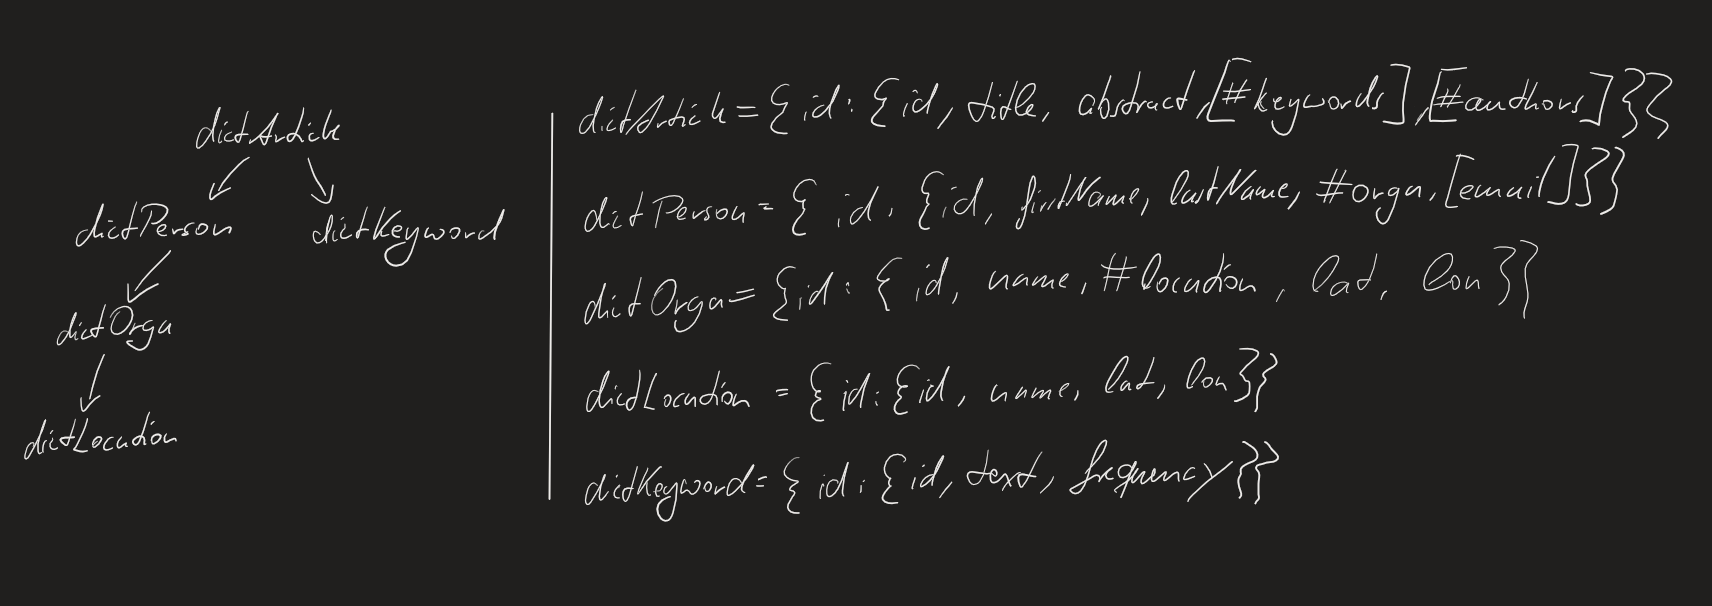 dictArticle
dictPerson dictKeyword
dictOrga
dictLocation
dictArticle = { id : { id, title, abstract, [#keywords], [#authors] }}
dictPerson = { id . { id, firstName, lastName, #orga, [email] }}
dictOrga = { id : { id, name, #location, lat, lon }}
dictLocation = { id : { id, name, lat, lon }}
dictKeyword = { id : { id, text, frequency }}